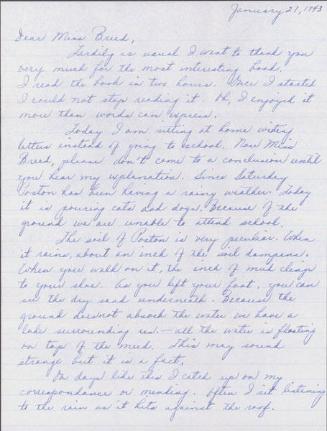 January 27, 1943
Dear Miss Breed,
Tardily as usual I want to thank you
very much for the most interesting book.
I read the book in two hours. Once I started
I could not stop reading it. Oh, I enjoyed it
more than words can express.
Today I am sitting at home writing
letters instead of going to school. Now Miss
Breed, please don't come to a conclusion until
you hear my explanation. Since Saturday
Poston has been having a rainy weather. Today
it is pouring cats and dogs. Because of the
ground we are unable to attend school.
The soil of Poston is very peculiar. When
it rains, about an inch of the soil dampens.
When you walk on it, the inch of mud clings
to your shoe. As you left your foot, you can
see the dry sand underneath. Because the
ground does not absorb the water we have a
lake surrounding us — all the water is floating
on top of the mud. This may sound
strange but it is a fact.
On days like this I catch up on my
correspondance or mending. Often I sit listening
to the rain as it hits against the roof.